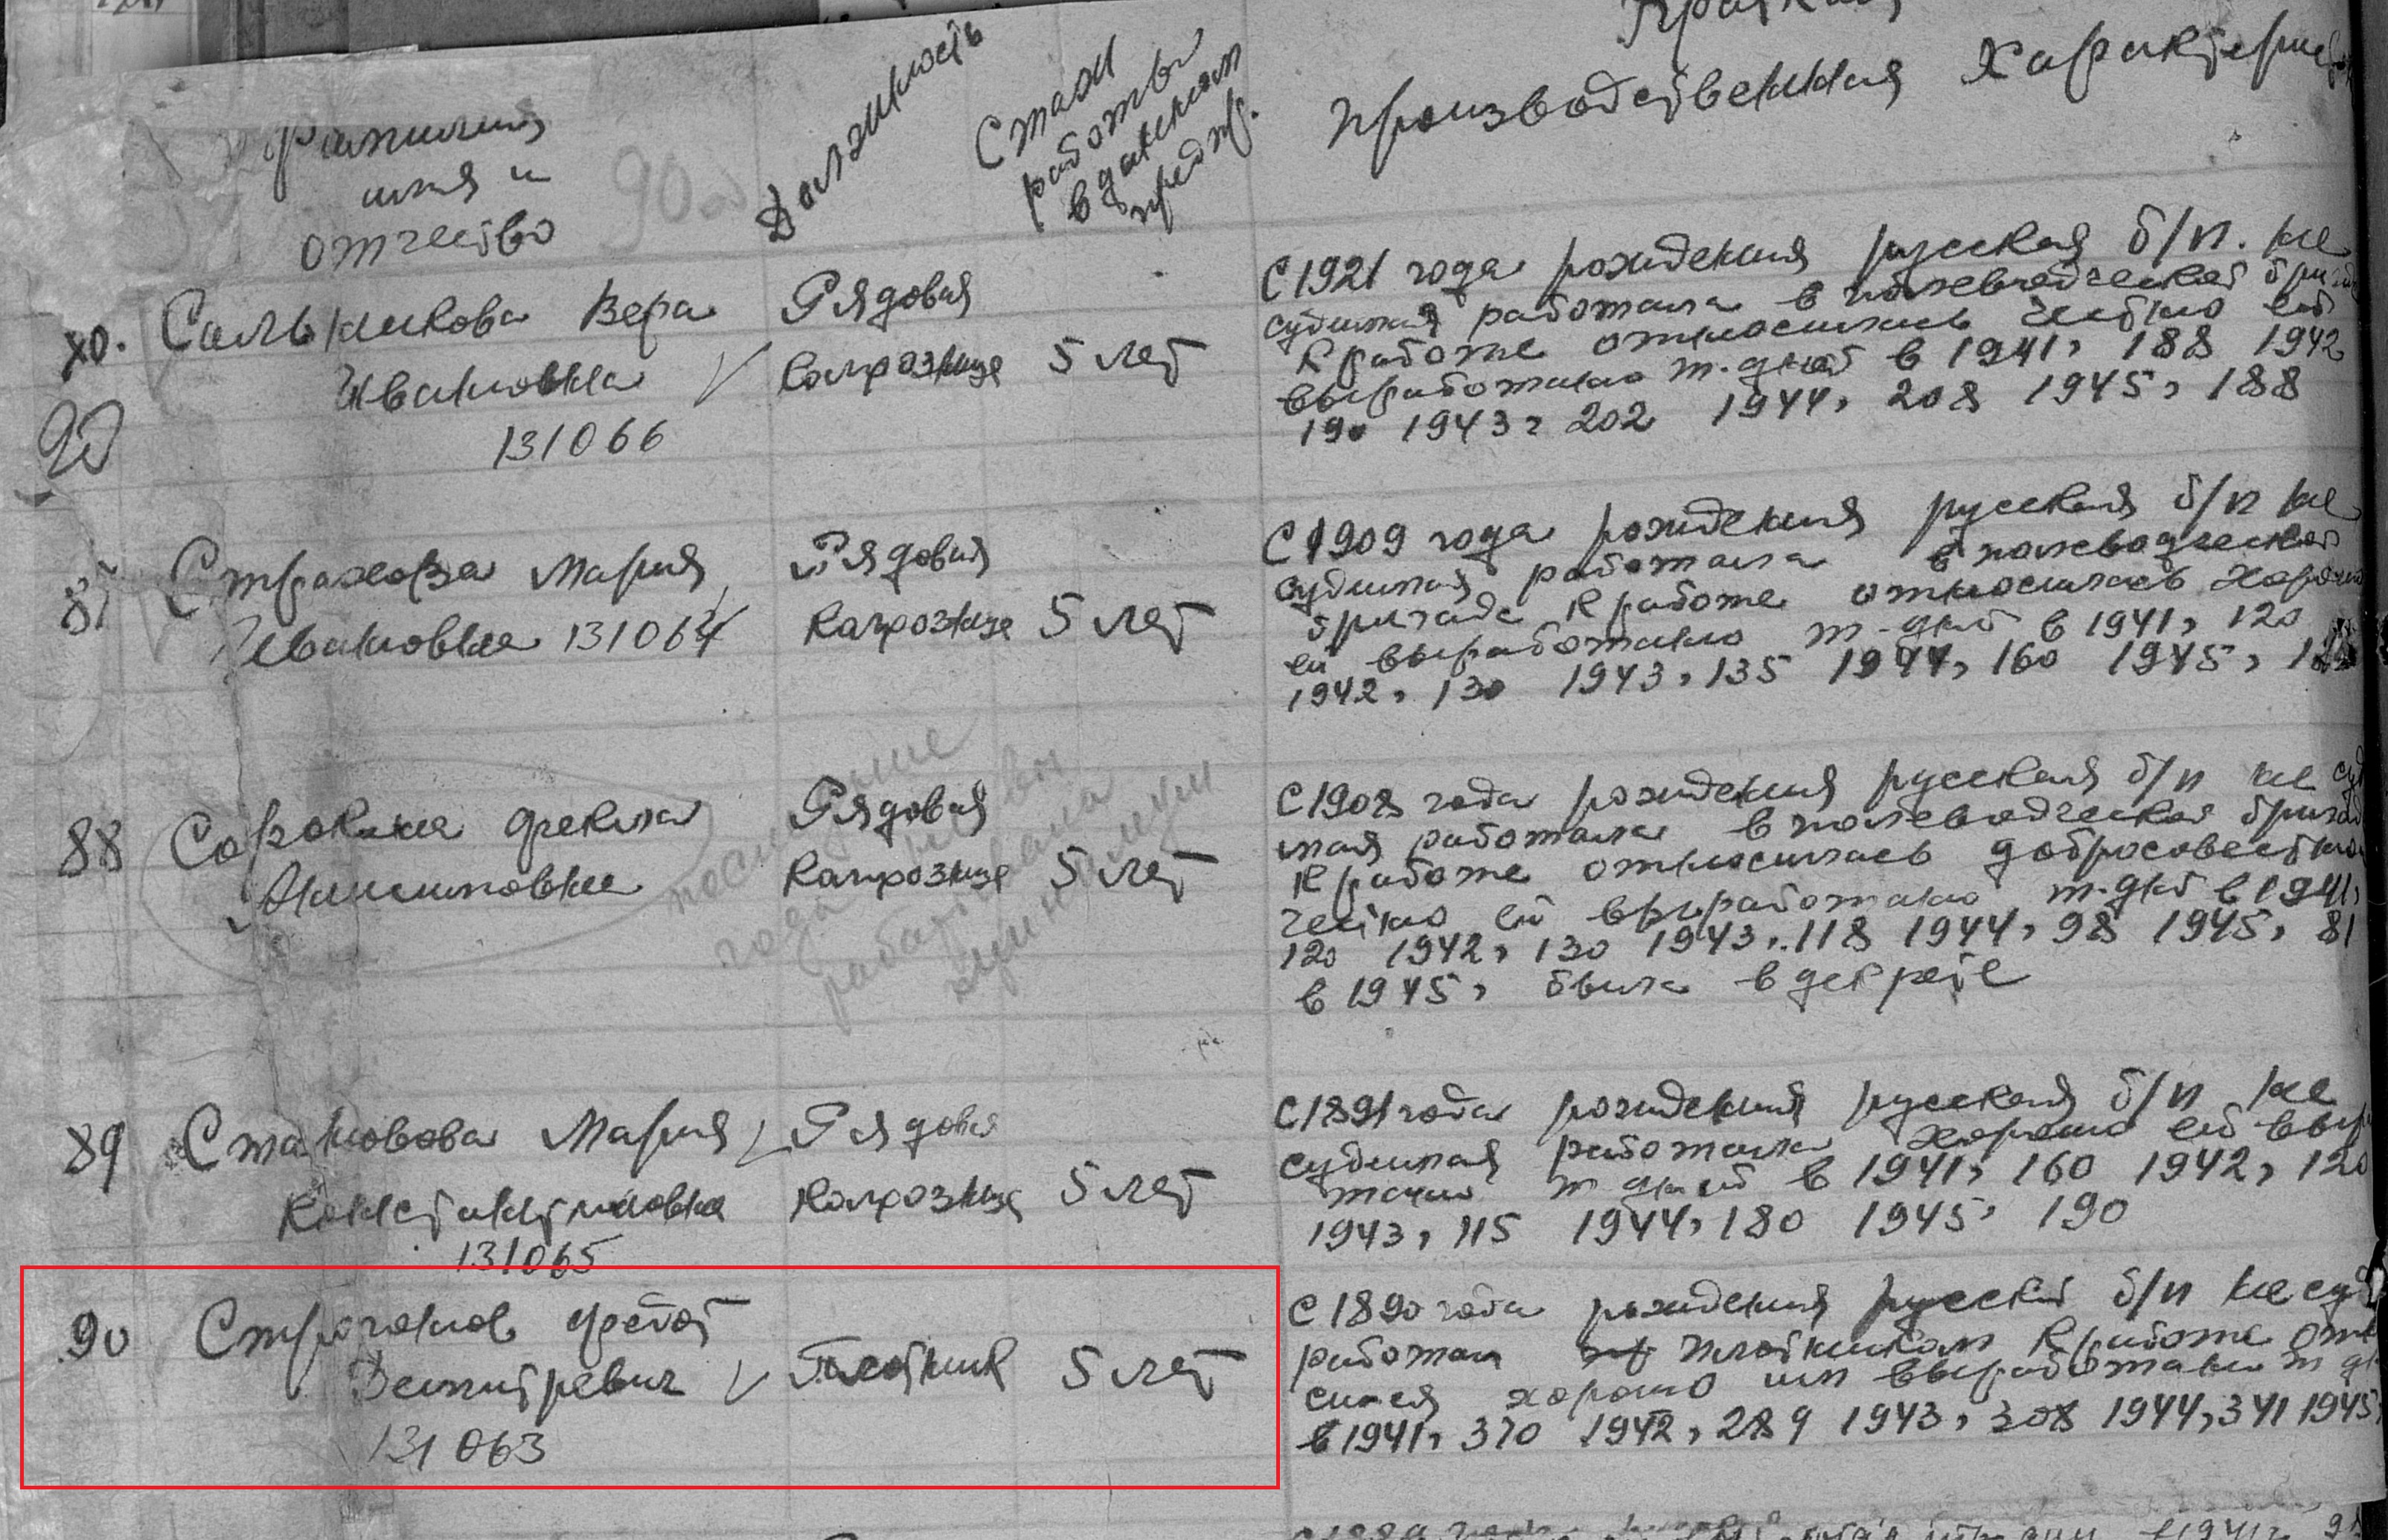 Фамилия
имя и
отчество
90
Должность
Стаж
работы
в данном
предпр.
Краткая
производственная Характерис
90. Сальникова Вера
Ивановна
131066
Рядовая
колхозница 5 лет
С 1921 года рождения русская б/п. не
судимая работала в полеводческой бриг
к работе относилась честно ей
выработано т.дней в 1941, 188 1942
190 1943, 202 1944, 208 1945, 188
87 Страхова Мария
Ивановна 131064
Рядовая
колхозница 5 лет
С 1909 года рождения русская б/п не
судимая работала в полеводческой
бригаде к работе относилась хорошо
ей выработано т-дней в 1941, 120
1942, 130 1943, 135 1944, 160 1945,
88 Сорокина Фекла
Акимовна
Рядовая
колхозница 5 лет
последние
года
работала
С 1908 года рождения русская б/п не суд
мая работала в полеводческой бригад
к работе относилась добросовестно
честно ей выработано т-дней в 1941,
120 1942, 130 1943, 118 1944, 98 1945, 81
в 1945, была в декрете
89 Становова Мария
Константиновна
131065
Рядовая
колхозница 5 лет
С 1891 года рождения русская б/п не
судимая работала хорошо ей выр
тано т дней в 1941, 160 1942, 120
1943, 115 1944, 180 1945, 190
90 Строганов Федот
Дмитревич
131063
Плотник 5 лет
С 1890 года рождения русский б/п не суд
работал плотником к работе отно
сился хорошо им выработано т дн
в 1941, 370 1942, 289 1943, 308 1944, 341 1945,